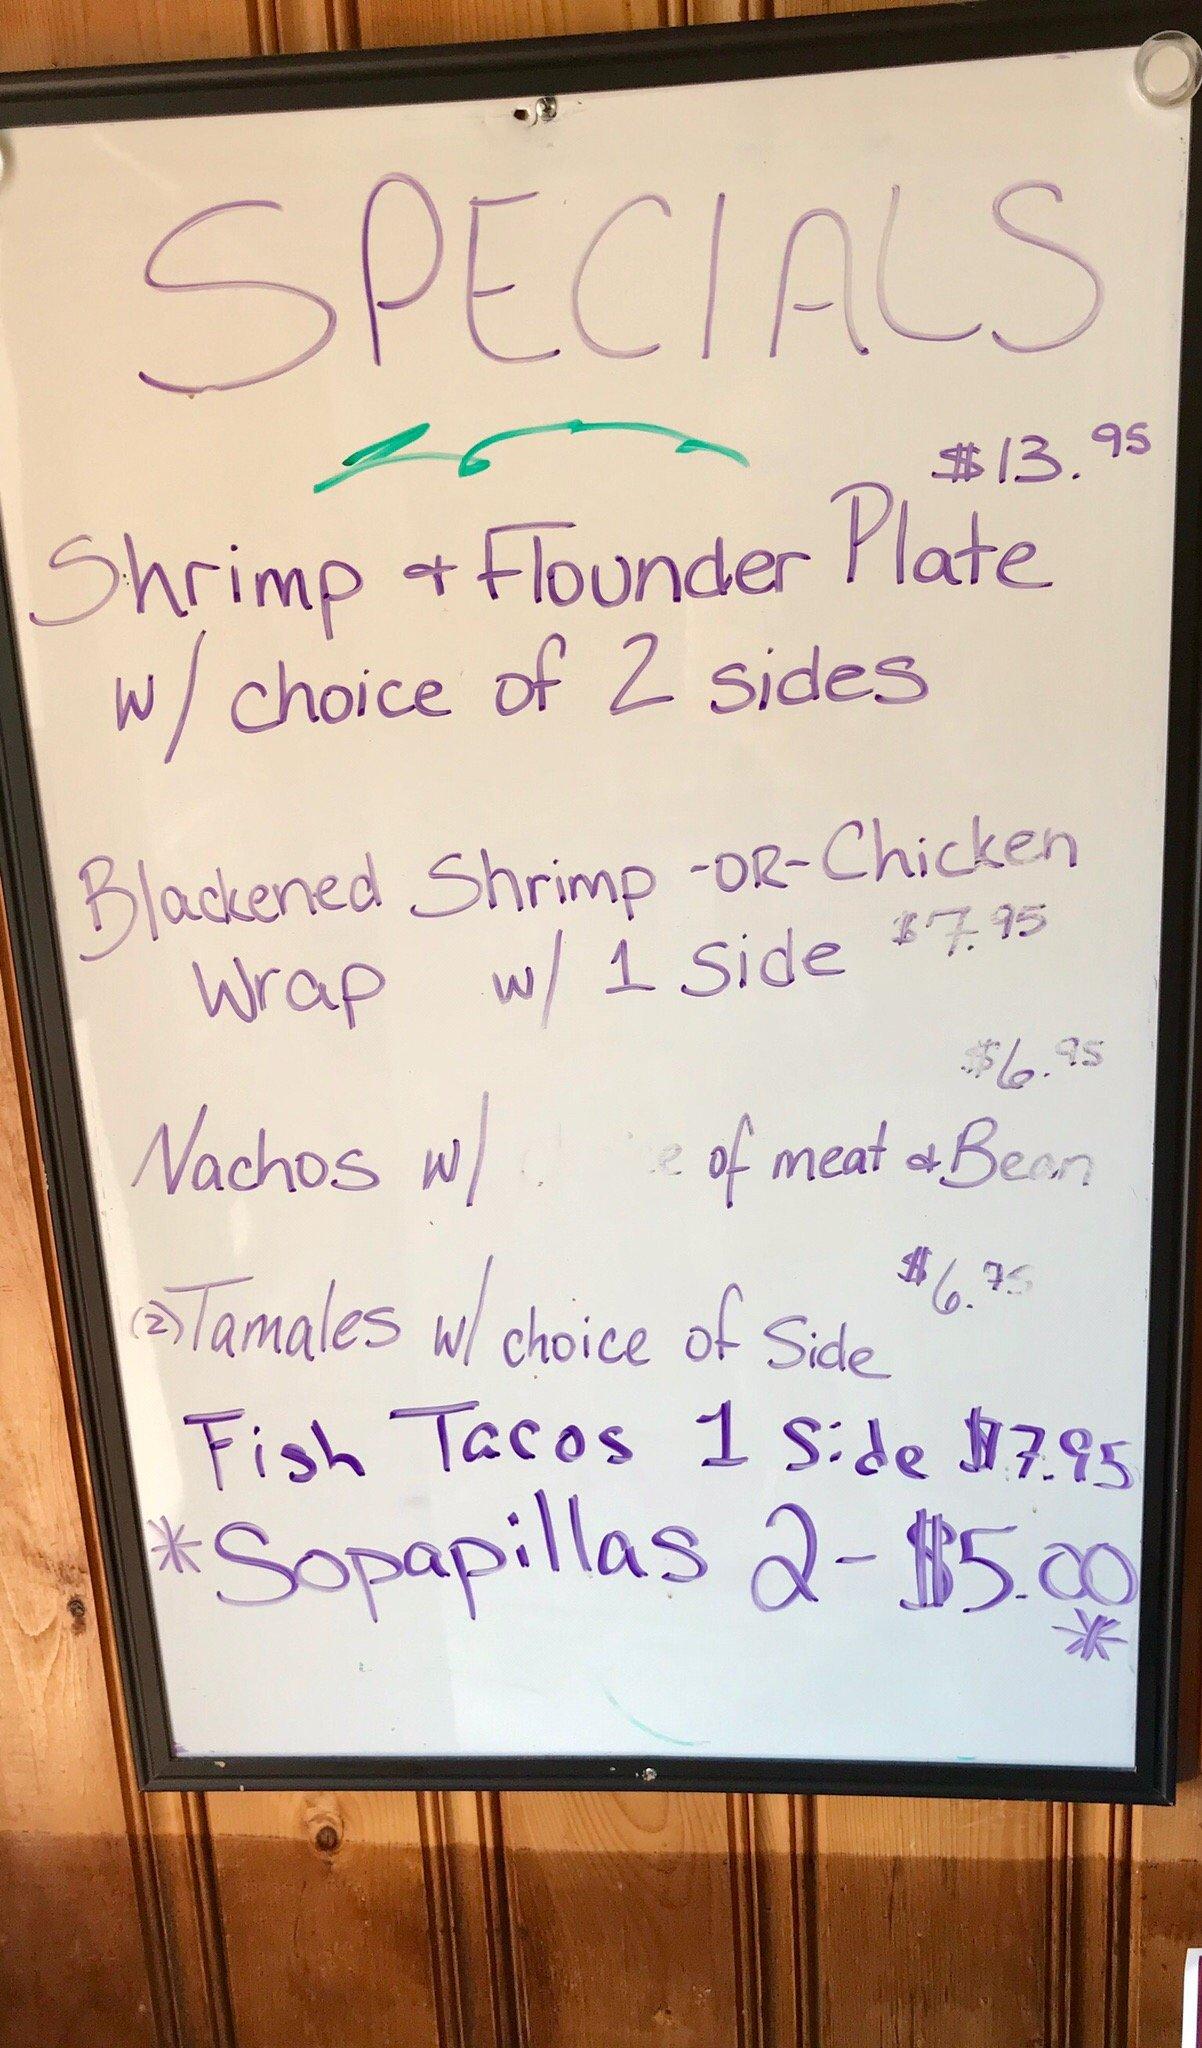 SPECIALS
$13.95
Shrimp & Flounder Plate
w/ choice of 2 sides
Blackened Shrimp -OR- Chicken
Wrap w/ 1 side $7.95
$6.95
Nachos w/ of meat & Bean
$6.75
(2) Tamales w/ choice of Side
Fish Tacos 1 Side $7.95
*Sopapillas 2 - $5.00
*